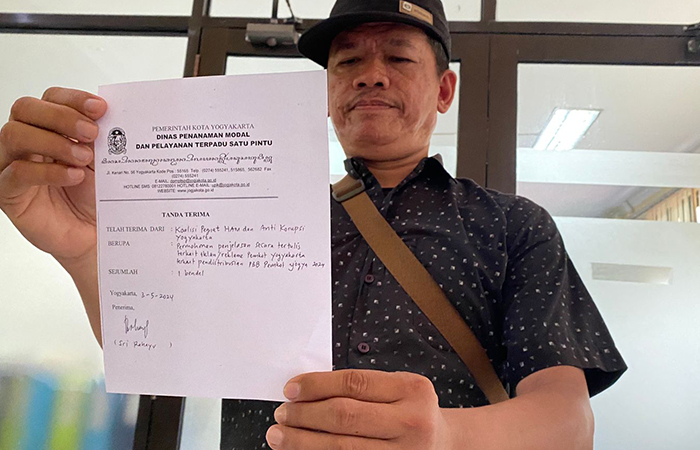 PEMERINTAH KOTA YOGYAKARTA
DINAS PENANAMAN MODAL
DAN PELAYANAN TERPADU SATU PINTU
Jl. Kenari No. 56 Yogyakarta Kode Pos : 55165 Telp. (0274) 555241, 515865, 562682 Fax
(0274) 555241
HOTLINE SMS: 08122780001 HOTLINE E-MAIL: upik@jogjakota.go.id
TANDA TERIMA
TELAH TERIMA DARI : Koalisi Pegiat HAM dan Anti Korupsi
Yogyakarta
BERUPA : Permohonan penjelasan secara tertulis
terkait iklan/reklame Pemkot Yogyakarta
terkait pendistribusian PBB Pemkot 2024
SEJUMLAH : 1 bendel
Yogyakarta, 3-5-2024
Penerima,
( Sri Rahayu )